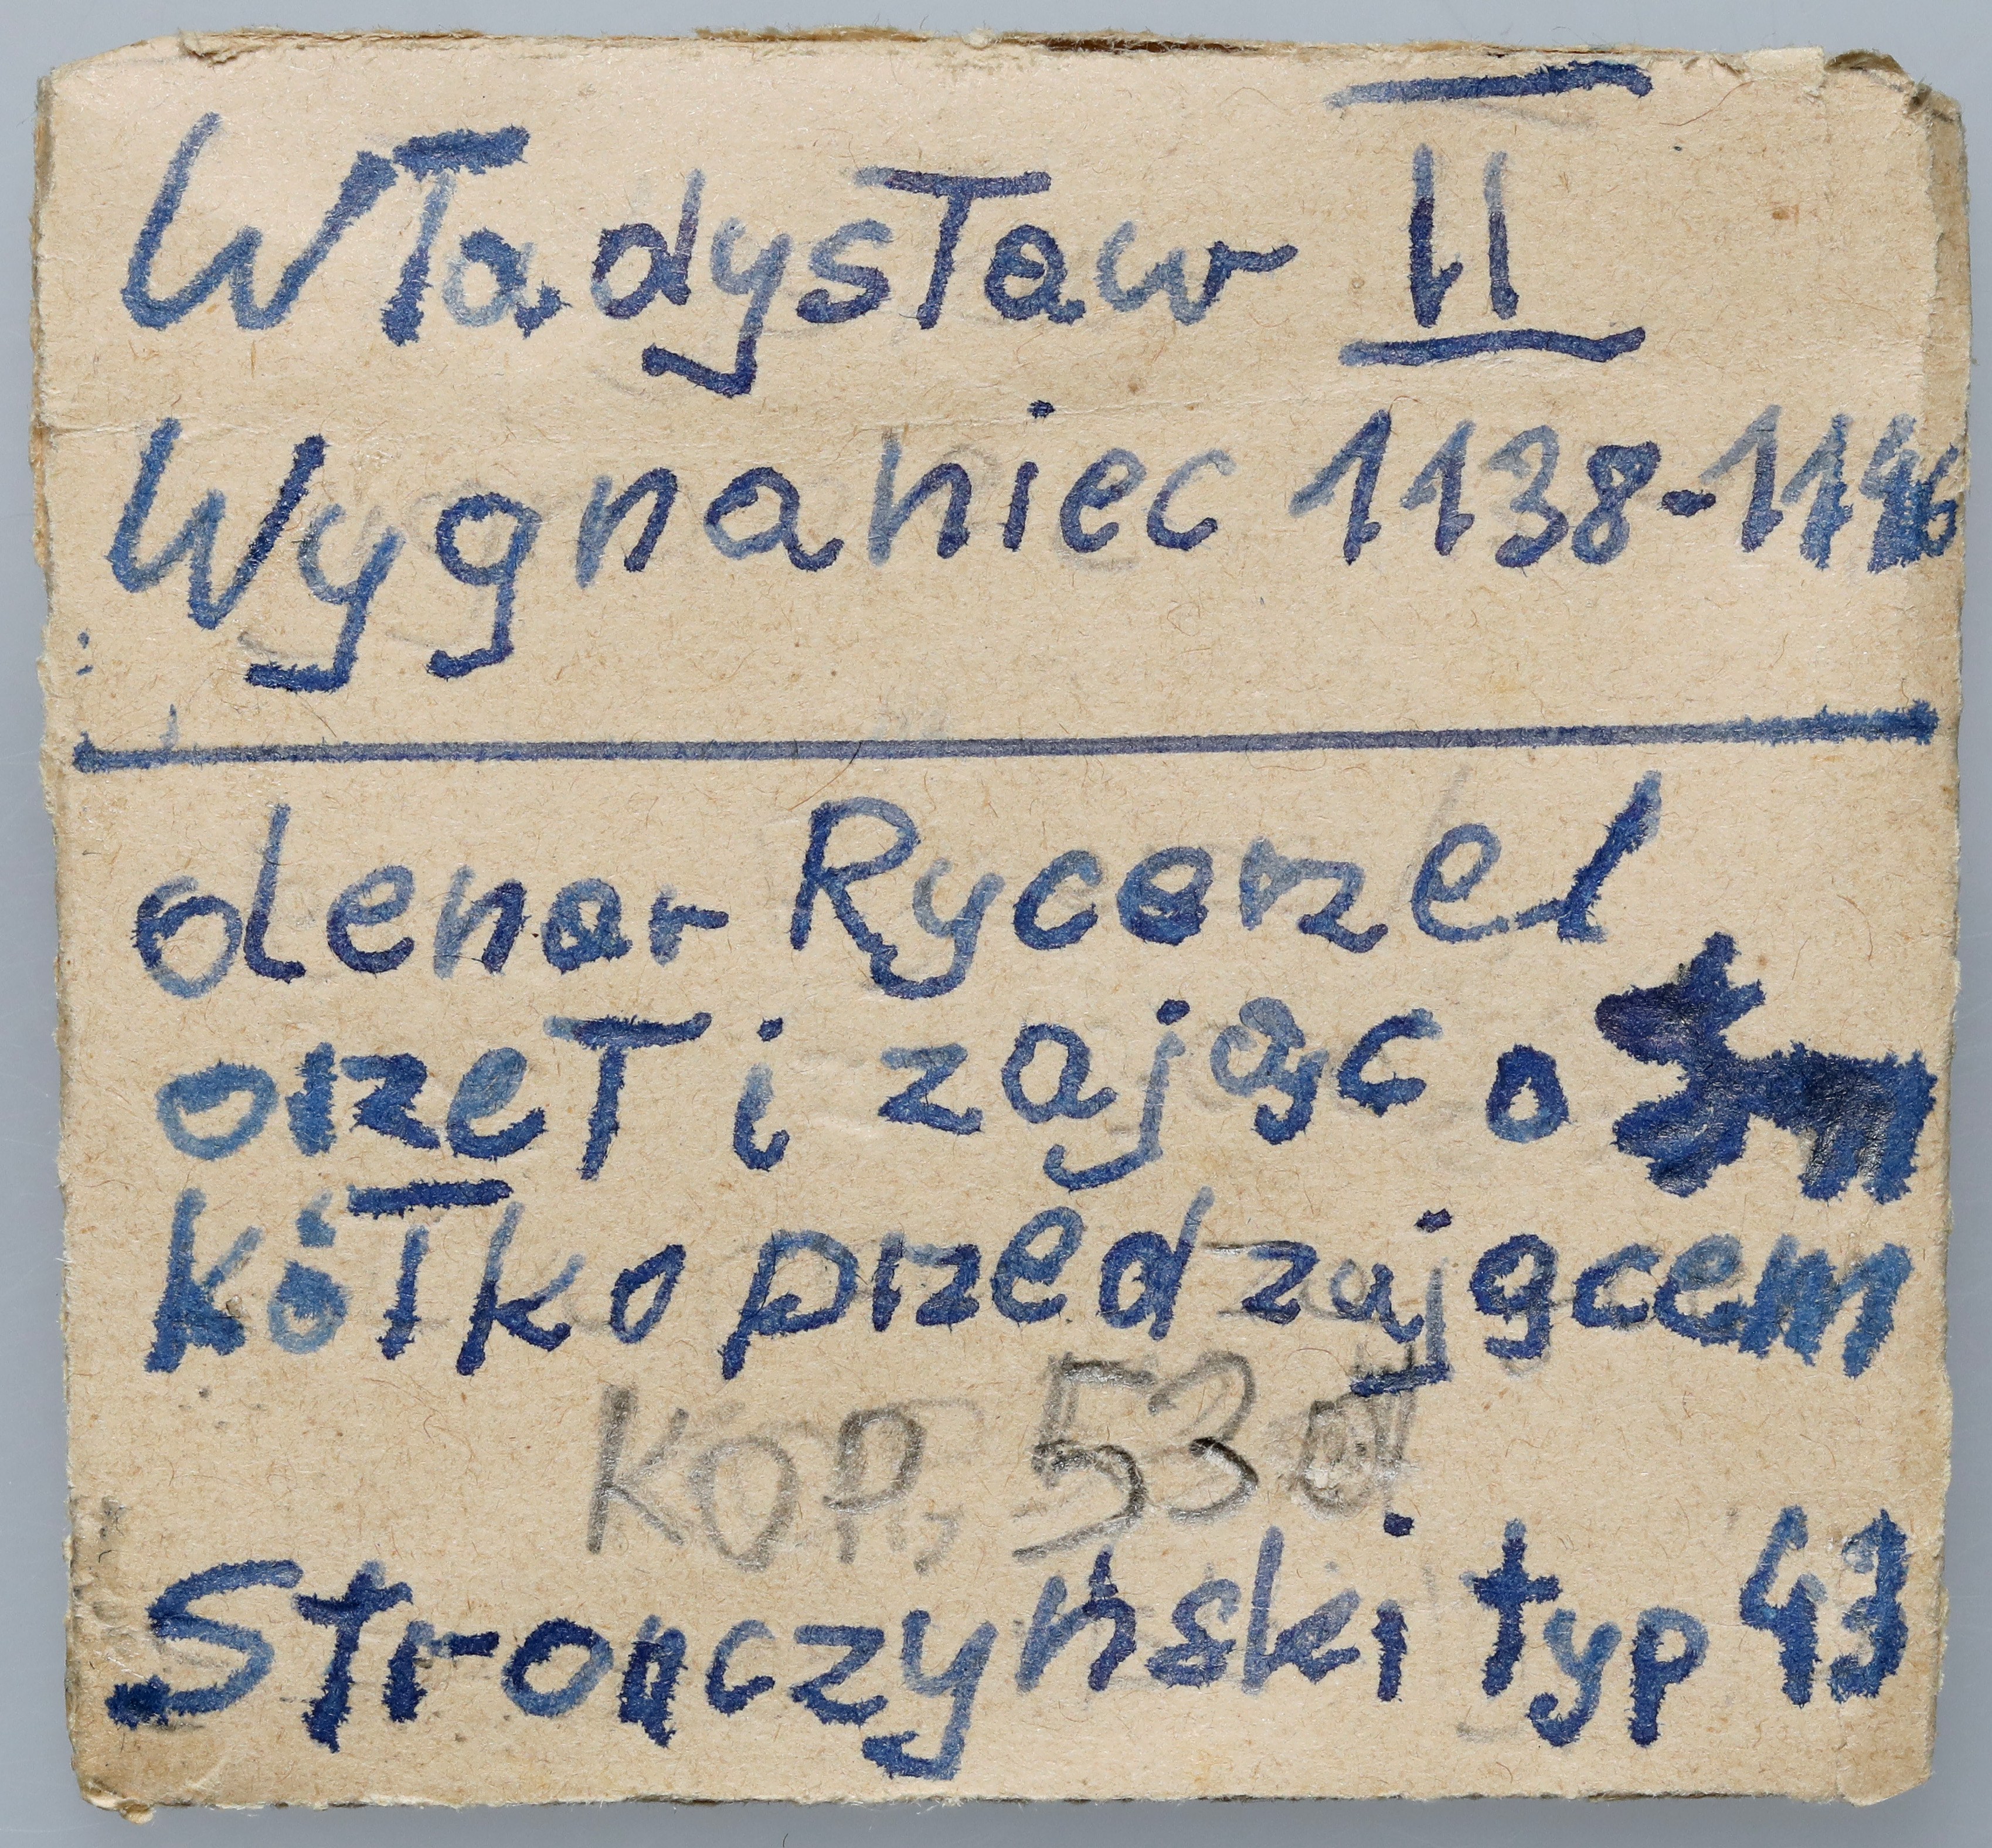 Władysław II
Wygnaniec 1138-1146
denar Rycerze /
orzeł i zając o
kółko przed zającem
KOP. 53
Stronczyński typ 43